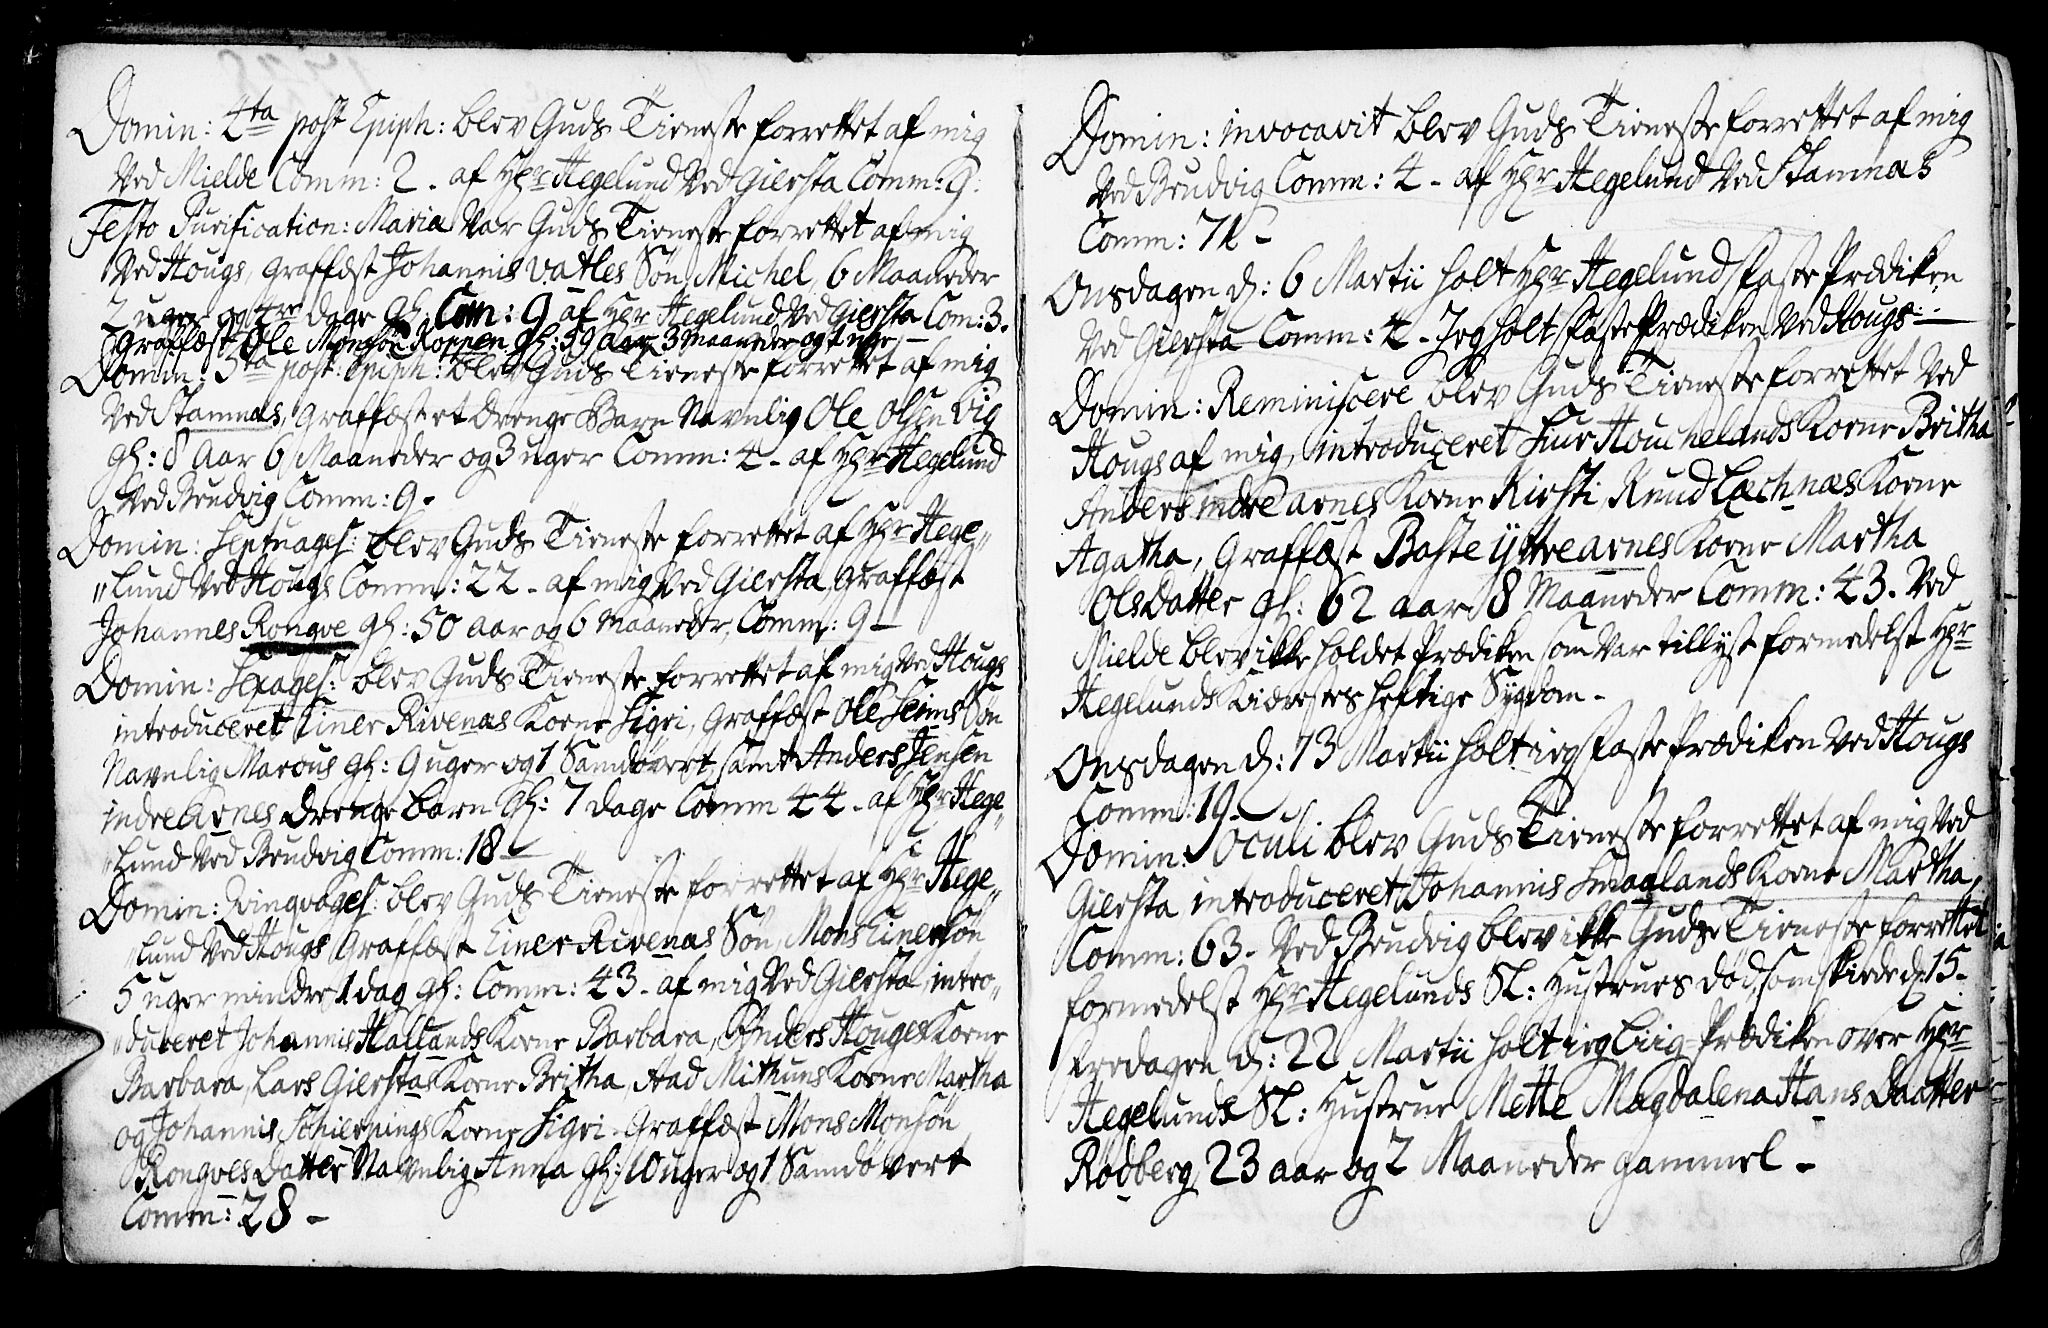 Domin: 4ta post Epiph: blev Guds Tieneste forrettet af mig
Ved Mielde Comm: 2. af Hr Hegelund Ved Giersta Comm: 9.
Festo Purification: Maria Var Guds Tieneste forrettet af mig
Ved Hougs, graffæst Johannis Vatles Søn Michel, 6 Maaneder
2 uger og 4re dage gl: Com: 9 af Hr Hegelund Ved Giersta Com: 3.
Graffæst Ole Monsøn Roppen gl: 59 aar 3 maaneder og 1 uge
Domin: 5ta post Epiph: blev Guds Tieneste forrettet af mig
Ved Stamnæs, Graffæst et drenge Barn Navnlig Ole Olsen Vig
gl: 8 Aar 6 Maaneder og 3 uger Comm: 4. af Hr Hegelund
Ved Brudvig Comm: 9.
Domin: Septuages: blev Guds Tieneste forrettet af Hr Hege„
„lund Ved Hougs Comm: 22. af mig Ved Giersta, graffæst
Johannes Rongve gl: 50 aar og 6 Maaneder, Comm: 9
Domin: Sexages: blev Guds Tieneste forrettet af mig Ved Hougs
introduceret Einer Rivenæs Kone Sigri, graffæst Ole Seims Søn
Navnlig Marcus gl: 9 uger og 1 Samdøvert, samt Anders Jensen
indre Arnes drenge barn gl: 7 dage Comm 44. af Hr Hege„
„lund Ved Brudvig Comm: 18
Domin: Qvingvages: blev Guds Tieneste forrettet af Hr Hege„
„lund Ved Hougs Graffæst Einer Rivenæs Søn, Mons Einersøn
5 uger mindre 1 dag gl: Comm: 43. af mig Ved Giersta, intro„
„duceret Johannis Hallands Kone Barbara, Anders Houges Kone
Barbara, Lars Gierstas Kone Britha, Aad Mithuns Kone Martha
og Johannis Schiernings Kone Sigri. Graffæst Mons Monsøn
Rongves Datter Navnlig Anna gl: 10 uger og 1 Samdøvert
Comm: 28
Domin: invocavit blev Guds Tieneste forrettet af mig
Ved Brudvig Comm: 4. af Hr Hegelund Ved Stamnæs
Comm: 71
Onsdagen d: 6 Martii holt Hr Hegelund faste Prædiken
Ved Giersta Comm: 4. Jeg holt faste Prædiken Ved Hougs
Domin: Reminiscere blev Guds Tieneste forrettet Ved
Hougs af mig, introduceret Siur Houchelands Kone Britha
Anders indre arnes Kone Kirsti, Knud Lechnæs Kone
Agatha, Graffæst Baste Yttre arnes Kone Martha
Ols Datter gl: 62 aar 8 Maaneder Comm: 43. Ved
Mielde blev ikke holdet Prædiken som Var tillyst formedelst Hr
Hegelunds Kiærestes heftige Sygdom.
Onsdagen d: 13 Martii holt ieg faste Prædiken Ved Hougs
Comm: 19.
Domin: Oculi blev Guds Tieneste forrettet af mig Ved
Giersta introduceret Johannis Smaglands Kone Martha,
Comm: 63. Ved Brudvig blev ikke Guds Tieneste forrettet
formedelst Hr Hegelunds Sl: Hustrues død, som skiede d: 15.
Fredagen d: 22 Martii holt ieg Liig-Prædiken over Hr
Hegelunds Sl: Hustrue Mette Magdalena Hans Daatter
Rødberg, 23 aar og 2 Maaneder gammel.